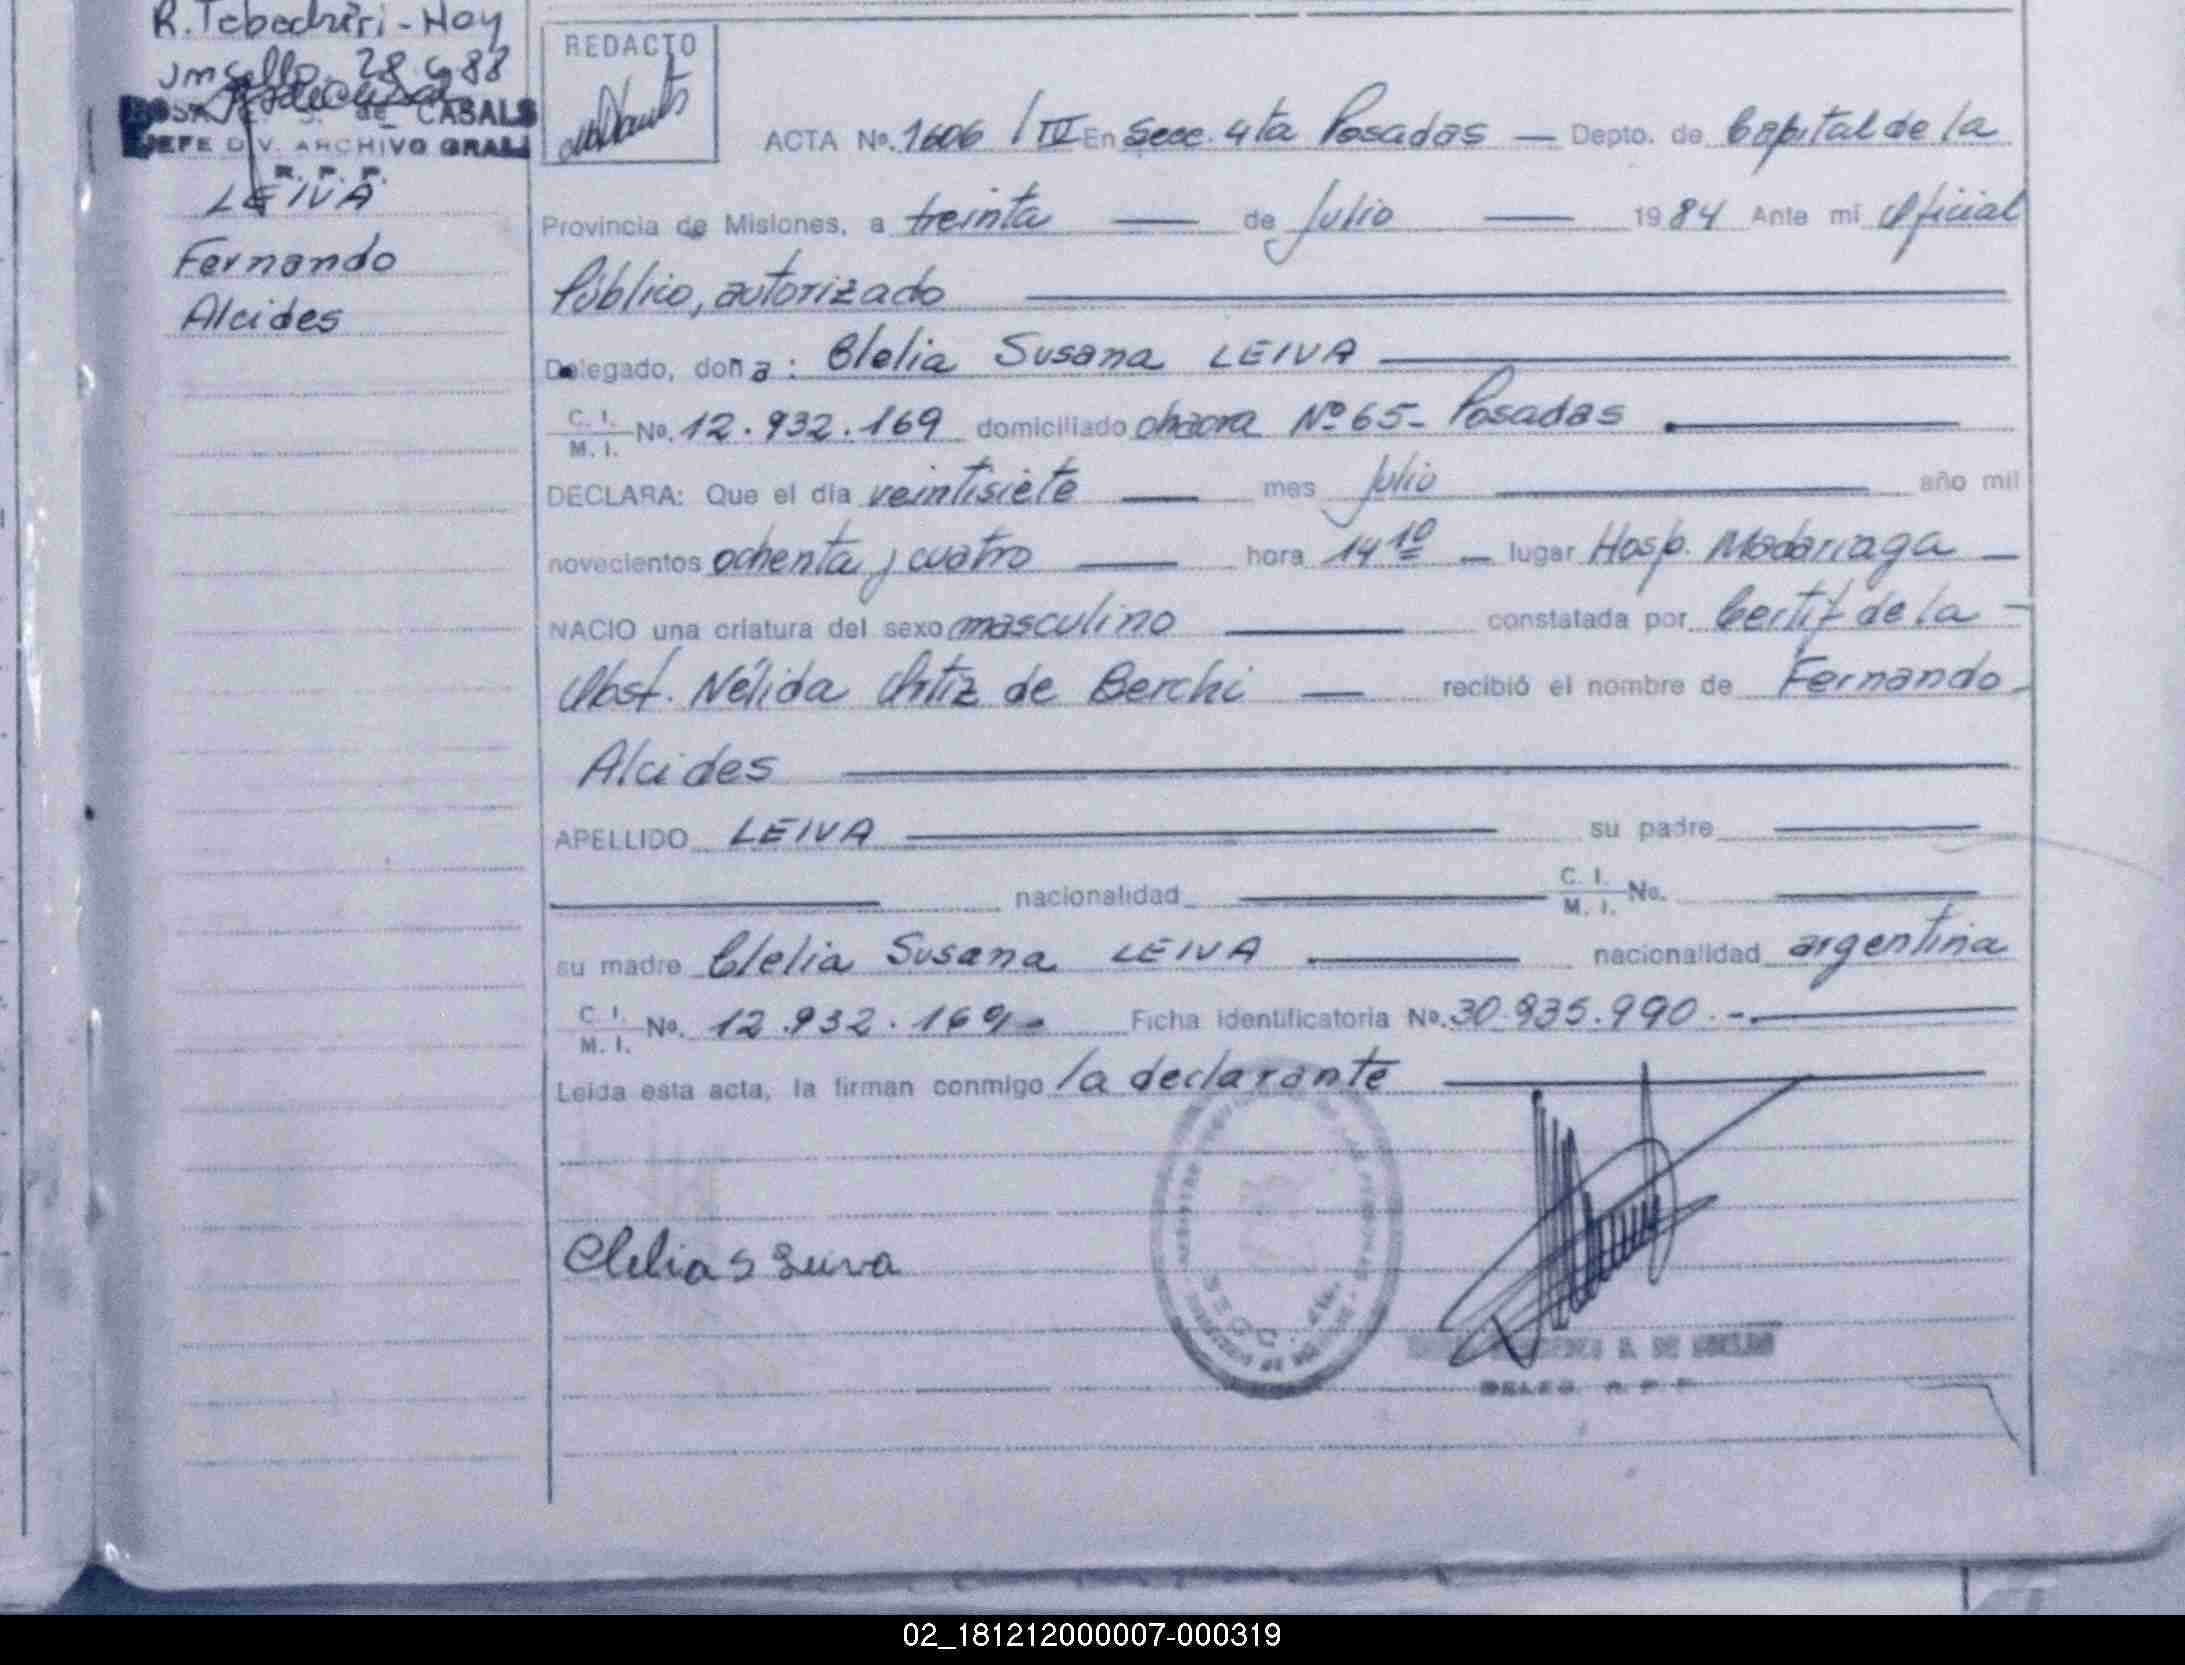 R. Tebechiri - Hay
28 6 88
de CASALS
JEFE DIV. ARCHIVO GRAL
R. P. P.
LEIVA
Fernando
Alcides
REDACTO
ACTA No. 1606 / IV En Secc. 4ta Posadas — Depto. de Capital de la
Provincia de Misiones, a treinta — de Julio — 1984 Ante mi Oficial
Público, autorizado
Delegado, doña: Clelia Susana LEIVA
C. I. / M. I. No. 12.932.169 domiciliado chacra Nº 65 - Posadas
DECLARA: Que el día veintisiete — mes Julio — año mil
novecientos ochenta y cuatro — hora 14 10 — lugar Hosp. Madariaga —
NACIO una criatura del sexo masculino — constatada por Certif de la -
Obst. Nélida Ortiz de Berchi — recibió el nombre de Fernando
Alcides
APELLIDO LEIVA — su padre —
— nacionalidad — C. I. / M. I. No. —
su madre Clelia Susana LEIVA — nacionalidad argentina
C. I. / M. I. No. 12.932.169 - Ficha identificatoria No. 30.935.990.-
Leída esta acta, la firman conmigo la declarante
Clelia S Leiva
SECC. 4ta.
DELEG. R. P. P.
02_181212000007-000319